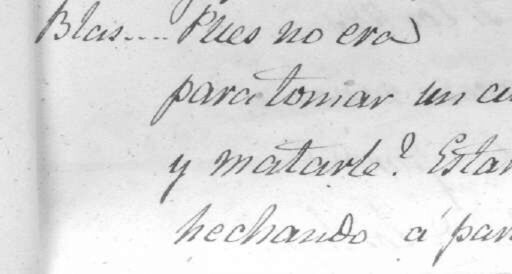 Blas.... Pues no era
para tomar un cu
y matarle? Estar
hechando á par